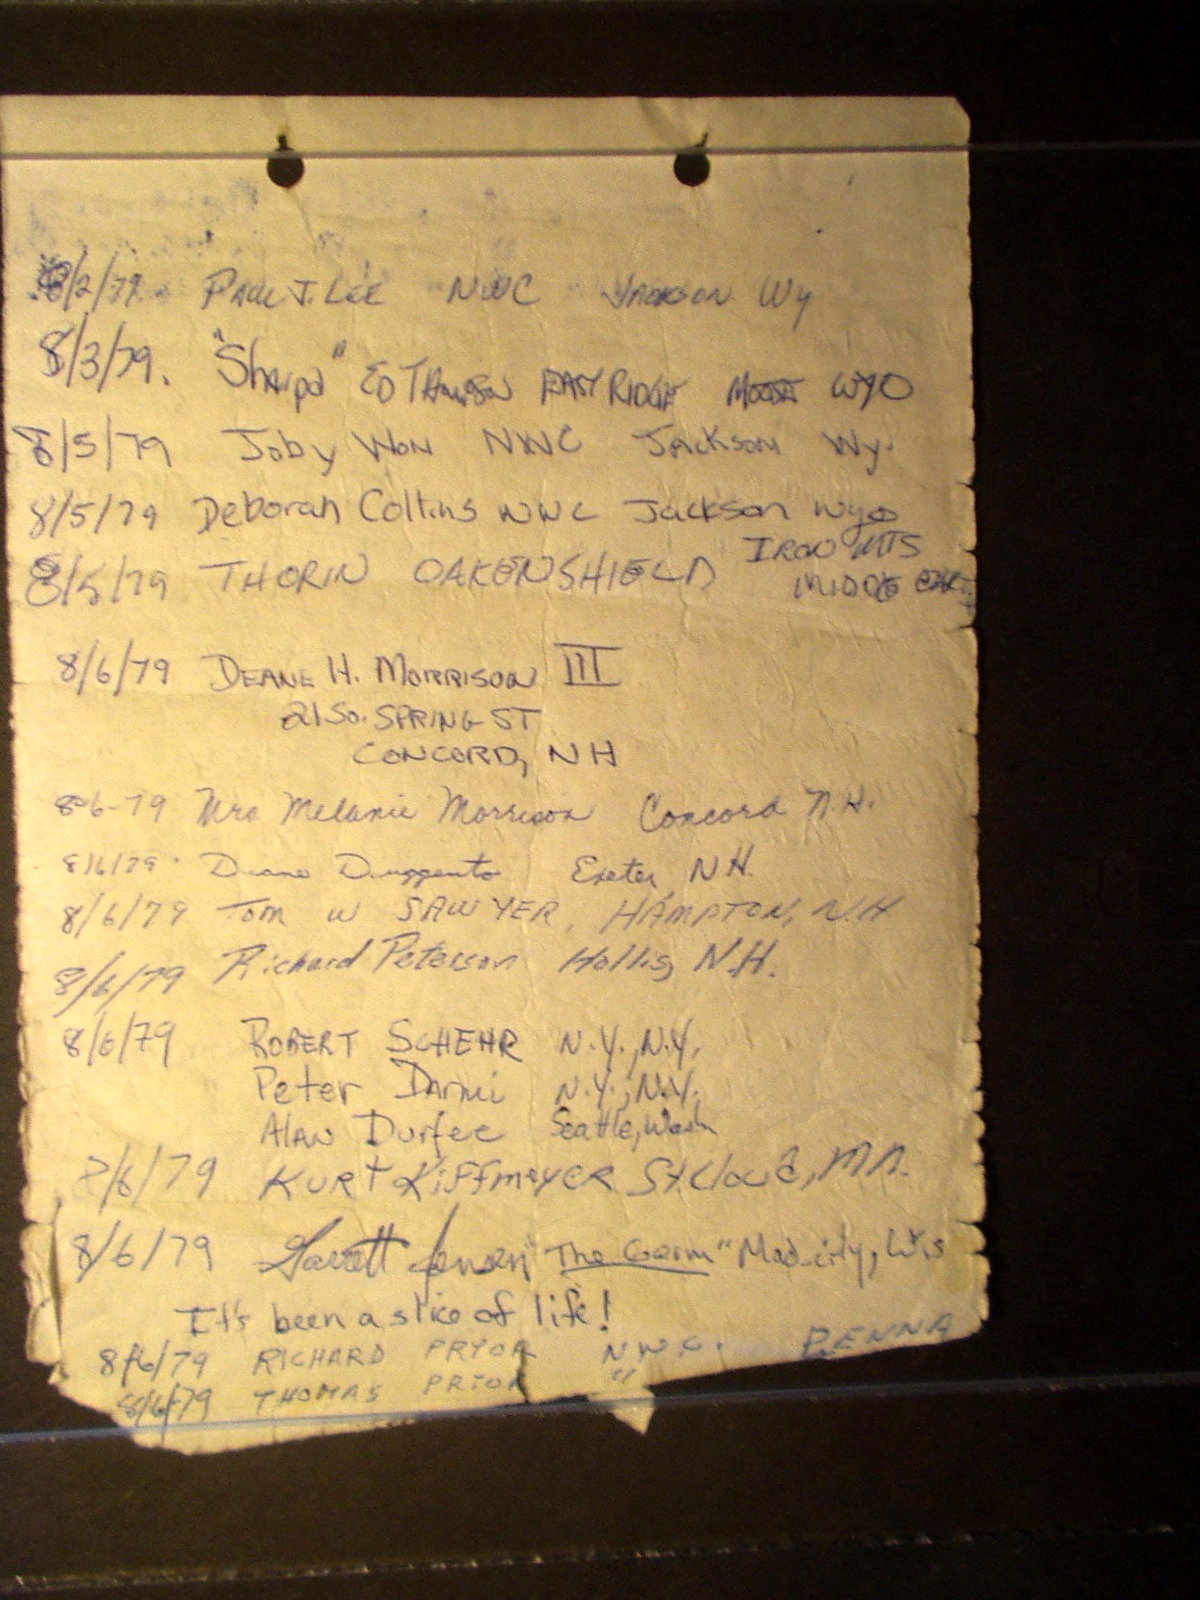 8/2/79 Paul J. Lee NWC Jackson Wy
8/3/79. "Sherpa" Ed Thompson EAST RIDGE MOOSE WYO
8/5/79 Joby Won NWC Jackson Wy.
8/5/79 Deborah Collins NWC Jackson Wyo
8/5/79 THORIN OAKENSHIELD IRON MTS
MIDDLE
8/6/79 DEANE H. MORRISON III
21 SO. SPRING ST
CONCORD, NH
8-6-79 Mrs Melanie Morrison Concord N.H.
8/6/79 Exeter, N.H.
8/6/79 Tom W SAWYER, HAMPTON, N.H
8/6/79 Richard Peterson Hollis, N.H.
8/6/79 ROBERT SCHEHR N.Y., N.Y.
Peter N.Y., N.Y.
Alan Durfee Seattle, Wash
8/6/79 KURT Kiffmeyer St. Cloud, MN.
8/6/79 Garrett Jensen "The Germ" Mad-city, Wis
It's been a slice of life!
8/6/79 RICHARD PRYOR N.W.C. PENNA
8/6/79 THOMAS PRYOR "